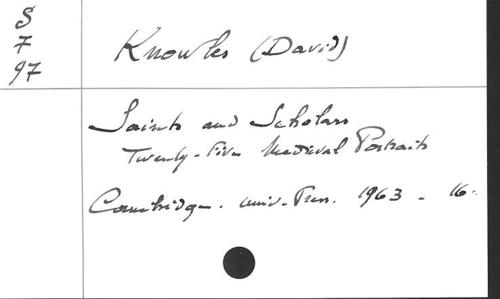 S
7
97
Knowles (David)
Saints and Scholars
Twenty-Five Medieval Portraits
Cambridge. Univ. Press. 1963 - 16.